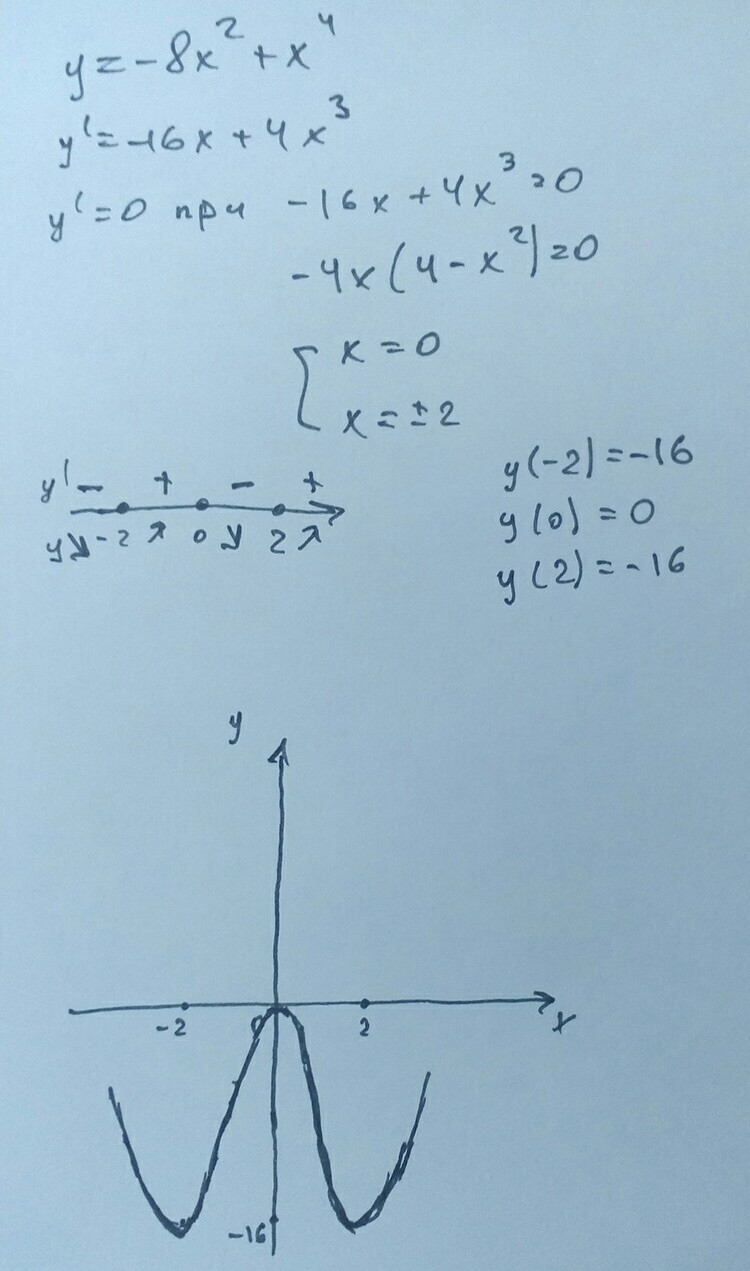 y = -8x² + x⁴
y' = -16x + 4x³
y' = 0 при -16x + 4x³ = 0
-4x(4 - x²) = 0
[ x = 0
x = ±2
y' - + - +
y ↘ -2 ↗ 0 ↘ 2 ↗
y(-2) = -16
y(0) = 0
y(2) = -16
y
-2 0 2 x
-16